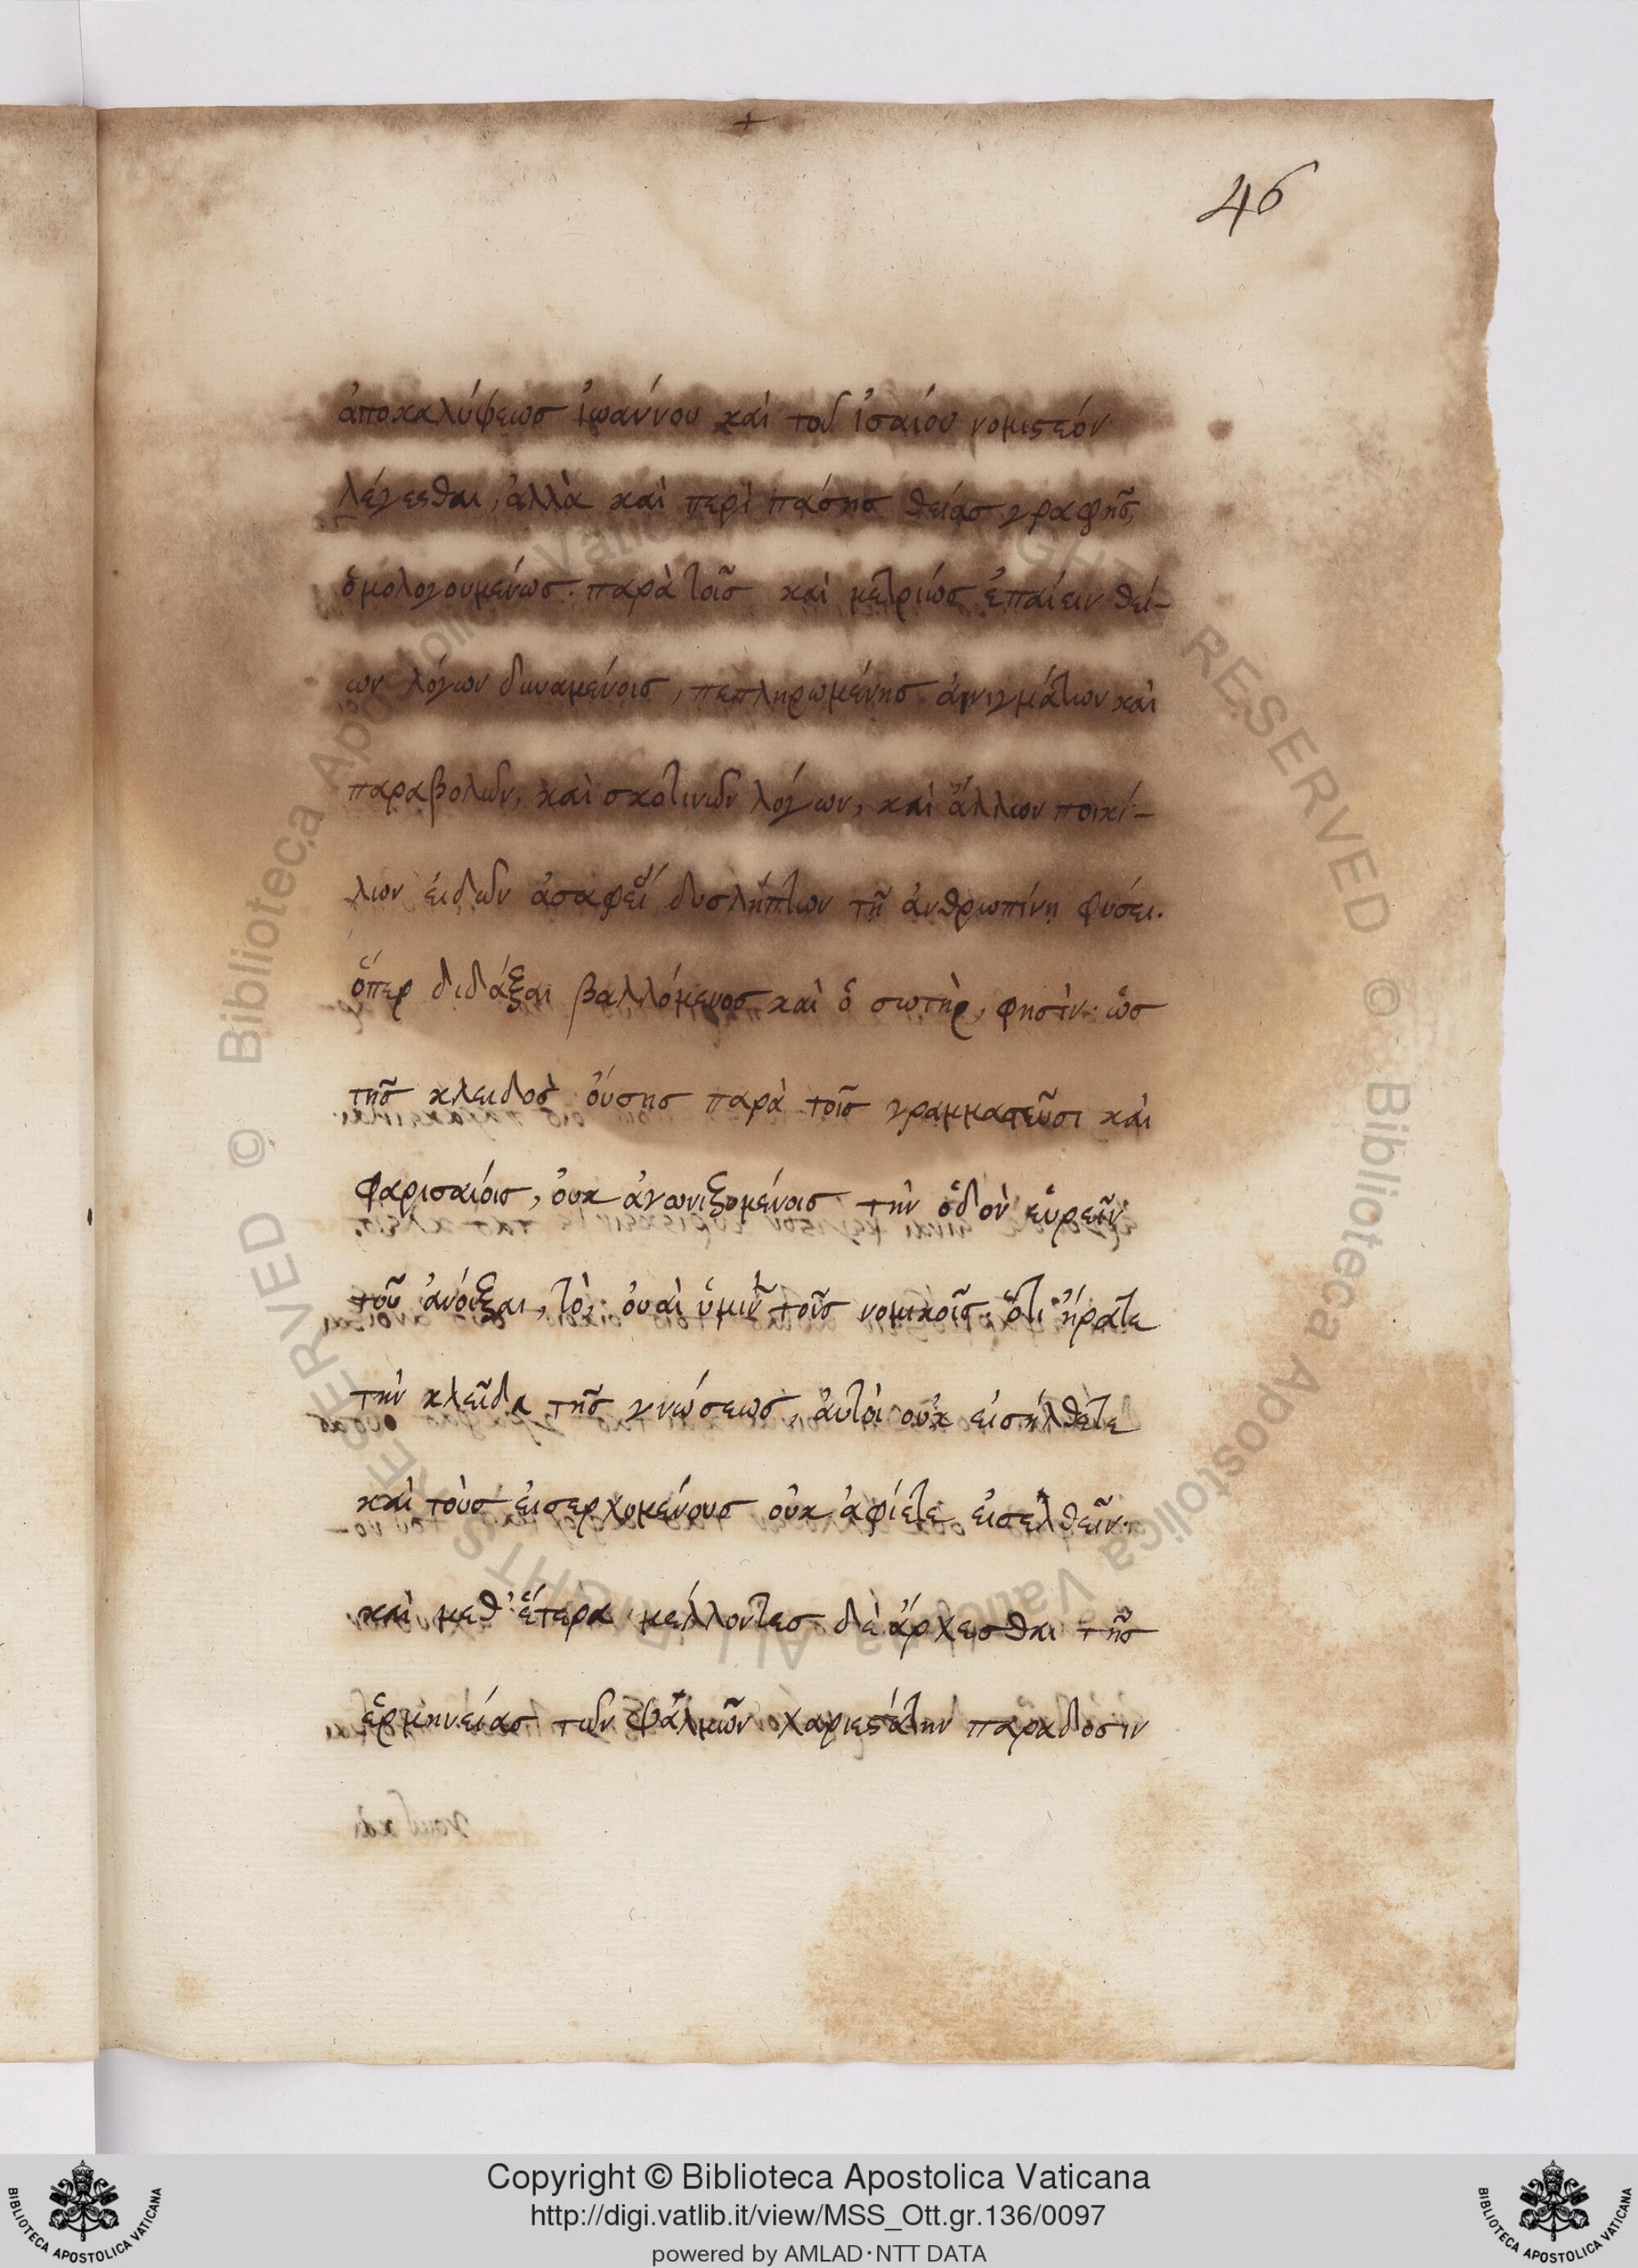 +
46
ἀποκαλύψεωσ ἰωάννου καὶ τοῦ ἰσαίου νομιϛεόν
λέγεσθαι, ἀλλὰ καὶ περὶ πάσησ θείασ γραφῆσ,
ὁμολογουμένωσ. παρὰ τοῖσ καὶ μετρίωσ ἐπαίειν θεί-
ων λόγων δυναμένοισ, πεπληρωμένησ αἰνιγμάτων καὶ
παραβολῶν, καὶ σκοτινῶν λόγων, καὶ ἄλλων ποικί-
λων εἰδῶν ἀσαφεί δυσλήπτων τῆ ἀνθρωπίνη φύσει.
ὅπερ διδάξαι βαλλόμενοσ καὶ ὁ σωτὴρ, φησὶν· ὡσ
τῆσ κλειδὸσ οὔσησ παρὰ τοῖσ γραμματεῦσι καὶ
φαρισαίοισ, οὐκ ἀγωνιξομένοισ τὴν ὁδὸν εὑρεῖν
τοῦ ἀνοῖξαι, τὸ, οὐαὶ ὑμῖν τοῖσ νομικοῖσ. ὅτι ἤρατε
τὴν κλεῖδα τῆσ γνώσεωσ, ἀυτοὶ οὐκ εἰσήλθετε
καὶ τοὺσ εἰσερχομένουσ οὐκ ἀφίετε εἰσελθεῖν.
καὶ μεθ' ἕτερα μέλλοντεσ δὲ ἄρχεσθαι τῆσ
ἑρμηνείασ τῶν ψαλμῶν χαριεϛάτην παράδοσιν
Copyright © Biblioteca Apostolica Vaticana
http://digi.vatlib.it/view/MSS_Ott.gr.136/0097
powered by AMLAD·NTT DATA
BIBLIOTECA APOSTOLICA VATICANA
BIBLIOTECA APOSTOLICA VATICANA